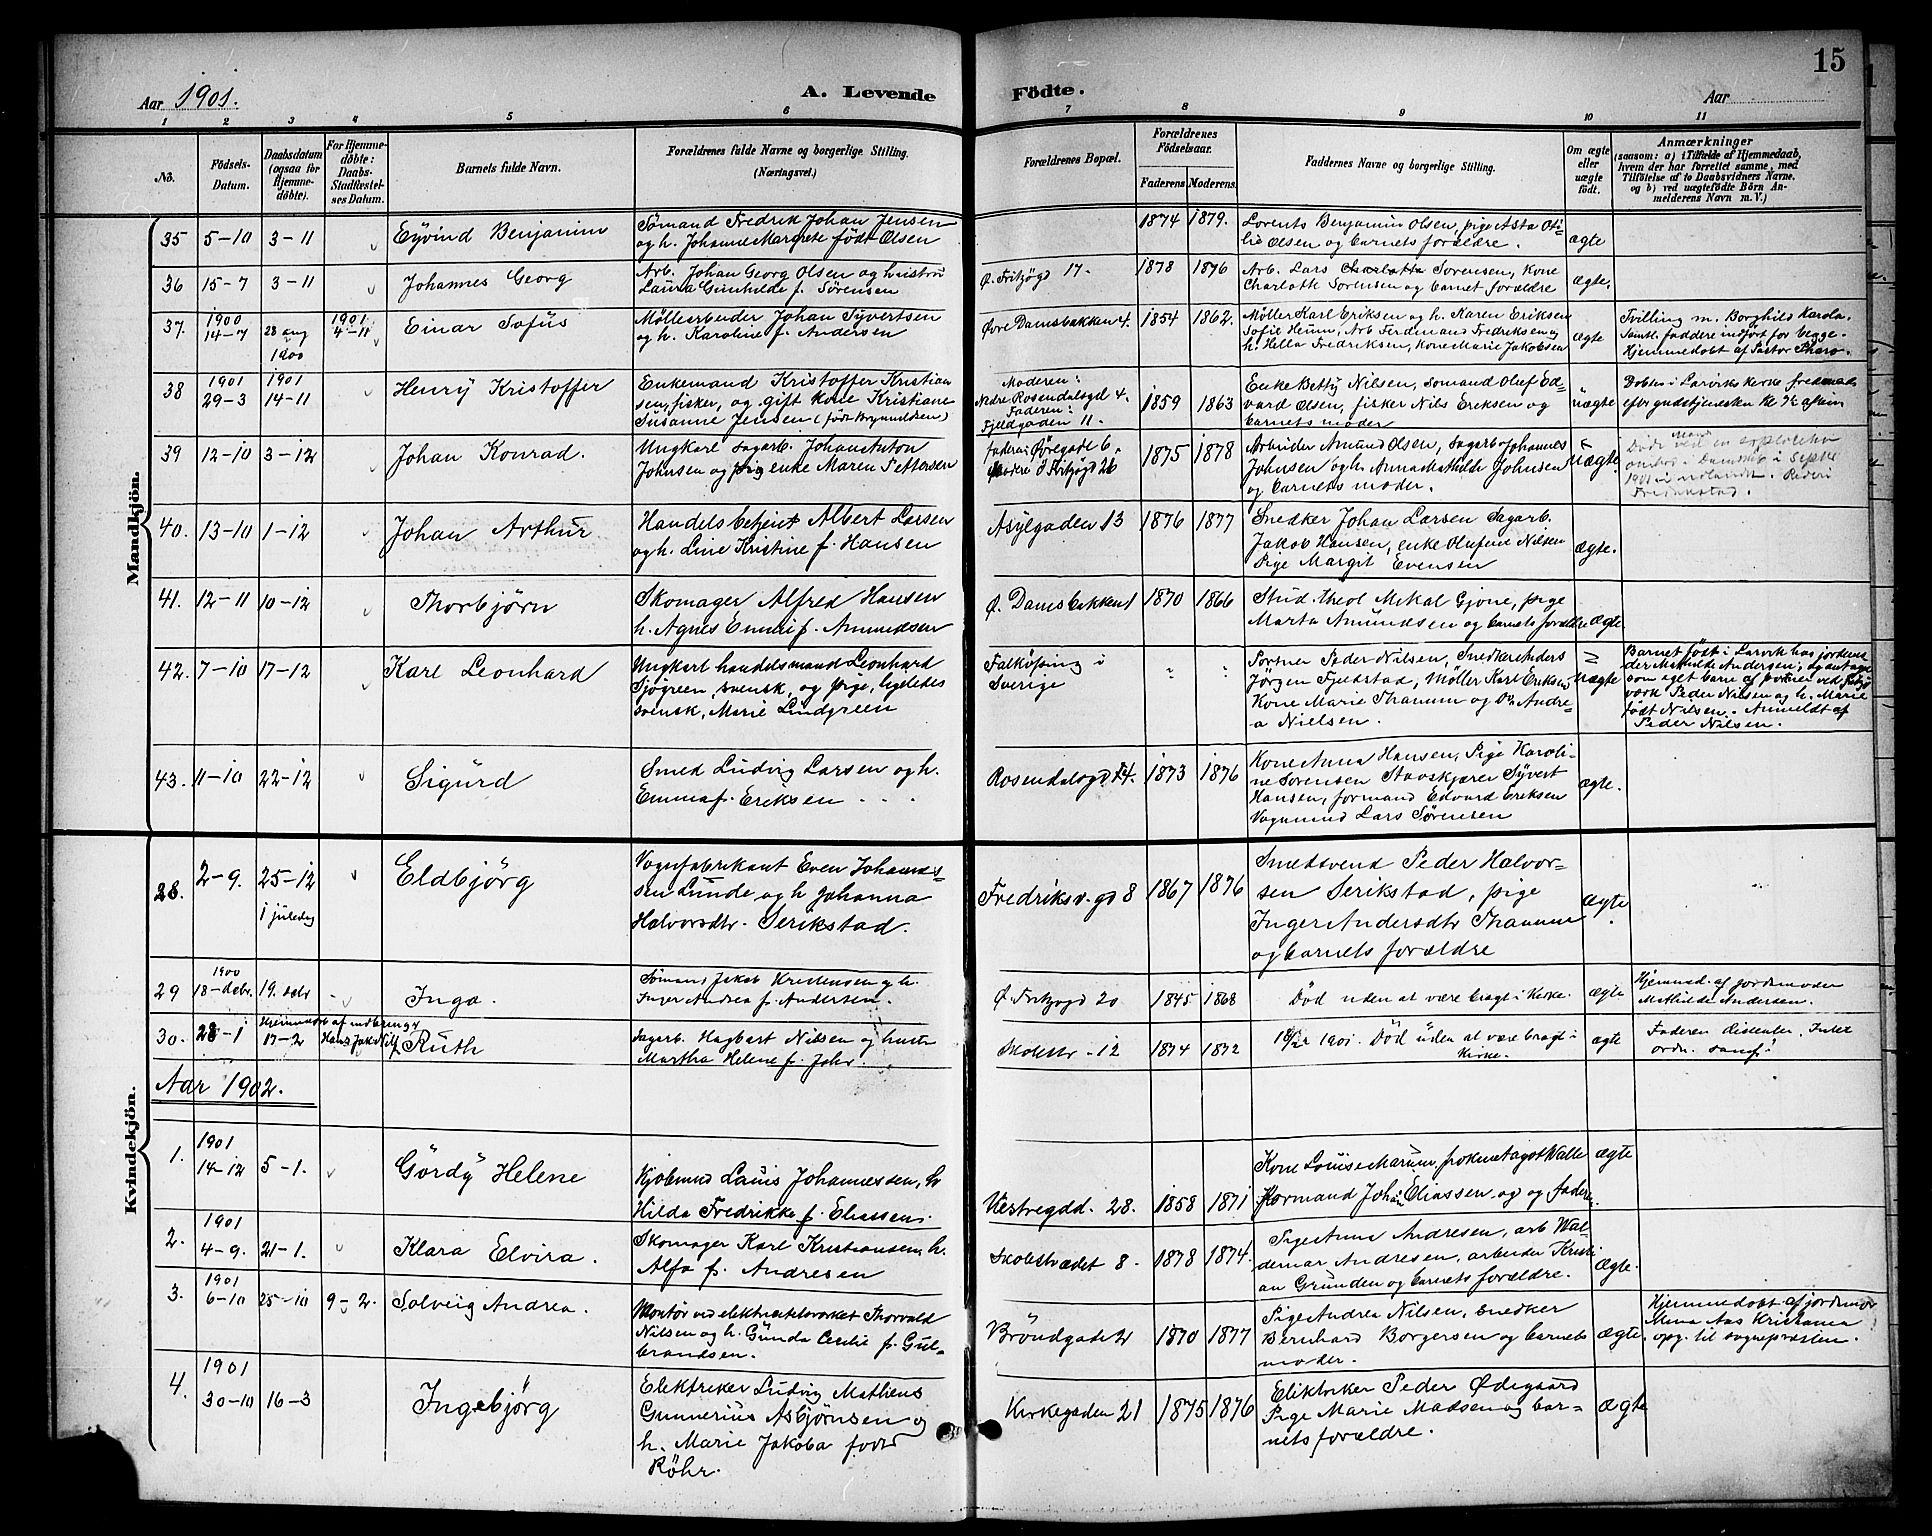 15
Aar 1901.
A. Levende
Födte.
Aar
1 2 3 4 5 6 7 8 9 10 11
No.
Födsels-Datum.
Daabsdatum (ogsaa for Hjemmedöbte).
For Hjemmedöbte: Daabs-Stadfæstelses Datum.
Barnets fulde Navn.
Forældrenes fulde Navne og borgerlige Stilling.
(Næringsvei.)
Forældrenes Bopæl.
Forældrenes Födselsaar.
Faderens Moderens.
Faddernes Navne og borgerlige Stilling.
Om ægte eller uægte födt.
Anmærkninger
(saasom: a) i Tilfælde af Hjemmedaab, hvem der har forrettet samme, med Tilföielse af to Daabsvidners Navne, og b) ved uægtefödte Börn Anmelderens Navn m. V.)
Mandkjön.
35 5-10 3-11 Eyvind Benjamin
Sömand Fredrik Johan Jensen
og h. Johanne Margrete födt Olsen
1874 1879.
Lorents Benjamin Olsen, pige Asta Oti-
lie Olsen og barnets forældre.
ægte
36 15-7 3-11 Johannes Georg
Arb. Johan Georg Olsen og hustru
Laura Gunhilde f. Sörensen
Ö. Fritzögd 17.
1878 1876
Arb. Lars Sorensen, Kone
Charlotte Sorensen og barnet forældre
ægte.
37. 1900 14-7 28 aug 1900 1901 4-11 Einar Sofus
Möllearbeider Johan Syvertsen
og h. Karoline f. Andersen
Övre Damsbakken 4.
1854 1862.
Möller Karl Eriksen og h. Karen Eriksen
Sofie Heum, Arb Ferdinand Fredriksen og
h. Hella Fredriksen, Kone Marie Jakobsen
ægte
Tvilling m. Borghild Karola.
Samtl. faddere indfört for begge.
Hjemmedöbt af Pastor
38 1901 29-3 1901 14-11 Henry Kristoffer
Enkemand Kristoffer Kristian
sen, fisker, og gift kone Kristiane
Susanne Jensen (födt Brynildsen)
Moderen:
Nedre Rosendalsgd 4.
Faderen:
Fjeldgaden 11.
1859 1863
Enke Betty Nilsen, Sömand Oluf Ed-
vard Olsen, fisker Nils Eriksen og
barnets moder
uægte
Döbt i Larviks kirke
efter gudstjenesten Kl
39 12-10 3-12 Johan Konrad.
Ungkarl sagarb. Johan Anton
Johnsen og enke Maren Pettersen
faderen Övregade 6
Moderen Ö Fritzögd 26
1875 1878
Arbeider Amund Olsen, Sagarb Johannes
Johnsen og h. Anna Mathilde Johnsen
og barnets moder.
uægte.
Döde ved en explosion
i Septbr
1901 i
Fredrikstad.
40. 13-10 1-12 Johan Arthur
Handelsbetjent Albert Larsen
og h. Line Kristine f. Hansen
Asylgaden 13
1876 1877
Snedker Johan Larsen Sagarb.
Jakob Hansen, enke Olufine Nilsen
Pige Margit Evensen
ægte.
41. 12-11 10-12 Thorbjörn
Skomager Alfred Hansen
h. Agnes Emmi f. Amundsen
Ö. Damsbakken 1
1870 1866
Stud. theol Mikal Gjone, pige
Marta Amundsen og barnets forældre
ægte
42. 7-10 17-12 Karl Leonhard
Ungkarl handelsmand Leonhard
Sjögreen, svensk, og pige, ligeledes
svensk, Marie Lindgreen
Falköping i
Sverige
" "
Portner Peder Nilsen, Snedker Anders
Jörgen Fjeldstad, Möller Karl Eriksen
Kone Marie Thamm og Andre-
a Nielsen.
uægte
Barnet födt i Larvik hos jordmo
der Mathilde Andersen; og antaget
som eget barn af portner ved Fritzö
værk Peder Nilsen og h. Marie
födt Nilsen. Anmeldt af
Peder Nilsen.
43. 11-10 22-12 Sigurd
Smed Ludvig Larsen og h.
Emma f. Eriksen
Rosendalsgd 4.
1873 1876
Kone Anna Hansen, Pige Karoli-
ne Sorensen Stavskjærer Syvert
Hansen, formand Edvard Eriksen
Vognmand Lars Sörensen
ægte.
Kvindekjön.
28. 2-9. 25-12 1 juledag Eldbjörg
Vognfabrikant Even Johannes-
sen Lunde og h Johanna
Halvorsdtr. Serikstad.
Fredriksv.gd 8
1867 1876
Smedsvend Peder Halvor-
sen Serikstad, pige
Inger Andersdtr Thamm
og barnets forældre
ægte
29 1900 18-decbr. 19. decbr Inga.
Sömand Jakob Kristensen og h.
Inger Andrea f. Andersen.
Ö. Fritzögd 20
1845 1868
Död uden at være bragt i Kirke.
ægte
Hjemmed. af jordmoder
Mathilde Andersen.
30. 28-1 17-2 Hjemmedöbt af Hans Jak Ruth
Sagarb. Hagbart Nilsen og hustru
Martha Helene f. Johs.
Skolestr - 12
1874 1872
1901. Död uden at være bragt i
Kirke.
ægte
Faderen dissenter.
Aar 1902.
1. 1901 14-12 5-1. Gördy Helene
Kjöbmd Lauis Johannessen, h
Hilda Fredrikke f. Eliassen.
Vestregdd. 28.
1858 1871
Kone Louise Marum, fröken Aagot Walle
Formand Johan Eliassen og og faderen.
ægte
2. 1901 4-9. 21-1. Klara Elvira.
Skomager Karl Kristiansen, h.
Alfa f. Andresen
Skolestrædet 8.
1878 1874.
Pige Anna Andresen, arb Wal-
demar Andresen, arbeider Kristi-
an Grunden og barnets forældre.
ægte.
3. 1901 6-10 25-10 9-2. Solveig Andrea.
Montör ved elektricitetsverket Thorvald
Nilsen og h. Gunda Cecilie f. Gul-
brandsen.
Bröndgade 21
1870 1877
Pige Andrea Nilsen, Snedker
Bernhard Borgersen og barnets
moder.
ægte
Hjemmedöbt af jordmor
Mina Aas Kristiania
opg. til sognepræsten.
4. 1901 30-10 16-3 Ingebjörg
Elektriker Ludvig Mathens
Gunnerius Asbjörnsen og
h. Marie Jakoba födt
Röhr.
Kirkegaden 21
1875 1876
Elektriker Peder Ödegaard
Pige Marie Madsen og bar-
nets forældre.
ægte